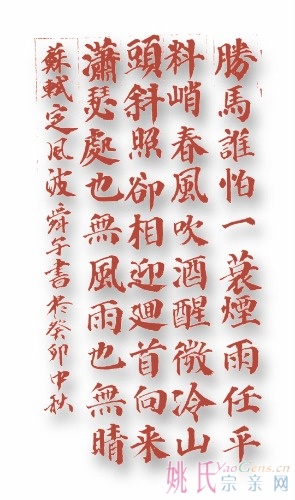 勝馬誰怕一蓑煙雨任平
料峭春風吹酒醒微冷山
頭斜照卻相迎迴首向来
瀟瑟處也無風雨也無晴
蘇軾定風波舜午書於癸卯中秋
姚氏 YaoGens.cn
宗亲网